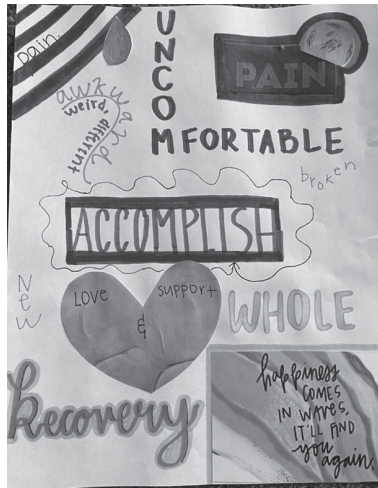 pain.
UNCOMFORTABLE
PAIN
awkward
weird, different
broken
ACCOMPLISH
New
Love
&
support
WHOLE
Recovery
happiness
COMES
IN WAVES,
IT'LL FIND
you
again.